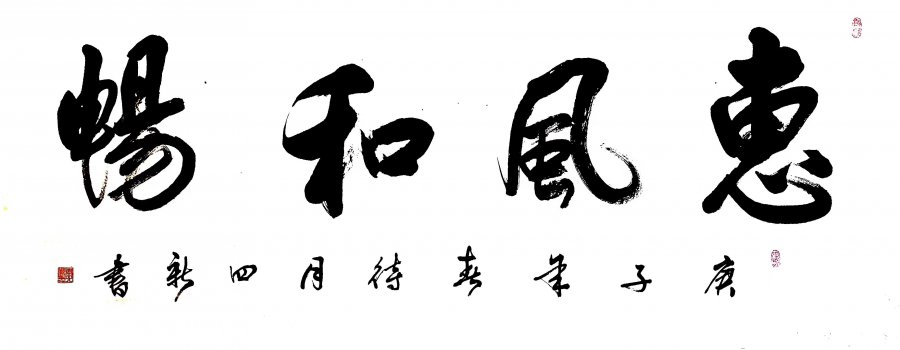 惠風和暢
庚子年春待月四新書